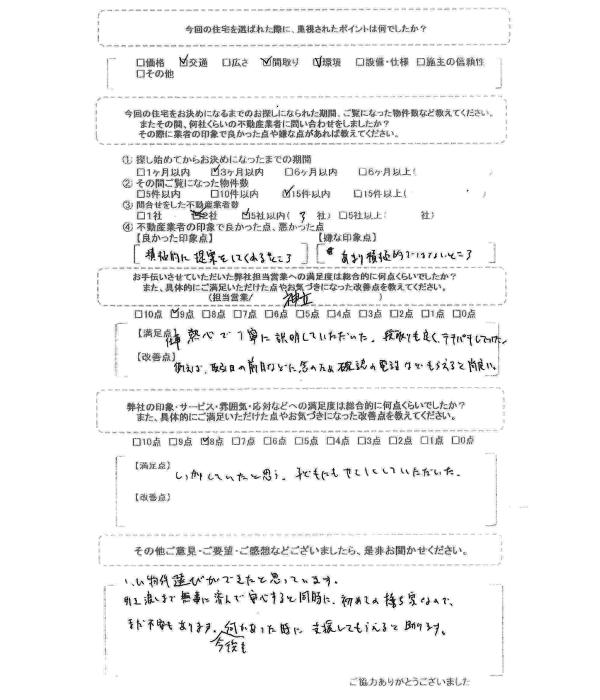 今回の住宅を選ばれた際に、重視されたポイントは何でしたか？
□価格 ☑交通 □広さ ☑間取り ☑環境 □設備・仕様 □施主の信頼性
□その他
今回の住宅をお決めになるまでのお探しになられた期間、ご覧になった物件数など教えてください。
またその間、何社くらいの不動産業者に問い合わせをしましたか？
その際に業者の印象で良かった点や嫌な点があれば教えてください。
① 探し始めてからお決めになったまでの期間
□1ヶ月以内 ☑3ヶ月以内 □6ヶ月以内 □6ヶ月以上( )
② その間ご覧になった物件数
□5件以内 □10件以内 ☑15件以内 □15件以上( )
③ 問合せをした不動産業者数
□1社 ☑2社 ☑5社以内( 3 社) □5社以上( 社)
④ 不動産業者の印象で良かった点、悪かった点
【良かった印象点】 【嫌な印象点】
積極的に提案をしてくれるところ あまり積極的ではないところ
お手伝いさせていただいた弊社担当営業への満足度は総合的に何点くらいでしたか？
また、具体的にご満足いただけた点やお気づきになった改善点を教えてください。
(担当営業/ 神立 )
□10点 ☑9点 □8点 □7点 □6点 □5点 □4点 □3点 □2点 □1点 □0点
【満足点】 仕事熱心で丁寧に説明していただいた。段取りも良く、テキパキしていた。
【改善点】
例えば、取引日の前日などに念のため確認の電話などもらえると尚良い。
弊社の印象・サービス・雰囲気・応対などへの満足度は総合的に何点くらいでしたか？
また、具体的にご満足いただけた点やお気づきになった改善点を教えてください。
□10点 □9点 ☑8点 □7点 □6点 □5点 □4点 □3点 □2点 □1点 □0点
【満足点】
しっかりしていたと思う。子どもにもやさしくしていただいた。
【改善点】
その他ご意見・ご要望・ご感想などございましたら、是非お聞かせください。
いい物件選びができたと思っています。
引き渡しまで無事に済んで安心すると同時に、初めての持ち家なので、
まだ不安もあります。何かあった時に支援してもらえると助かります。
今後も
ご協力ありがとうございました